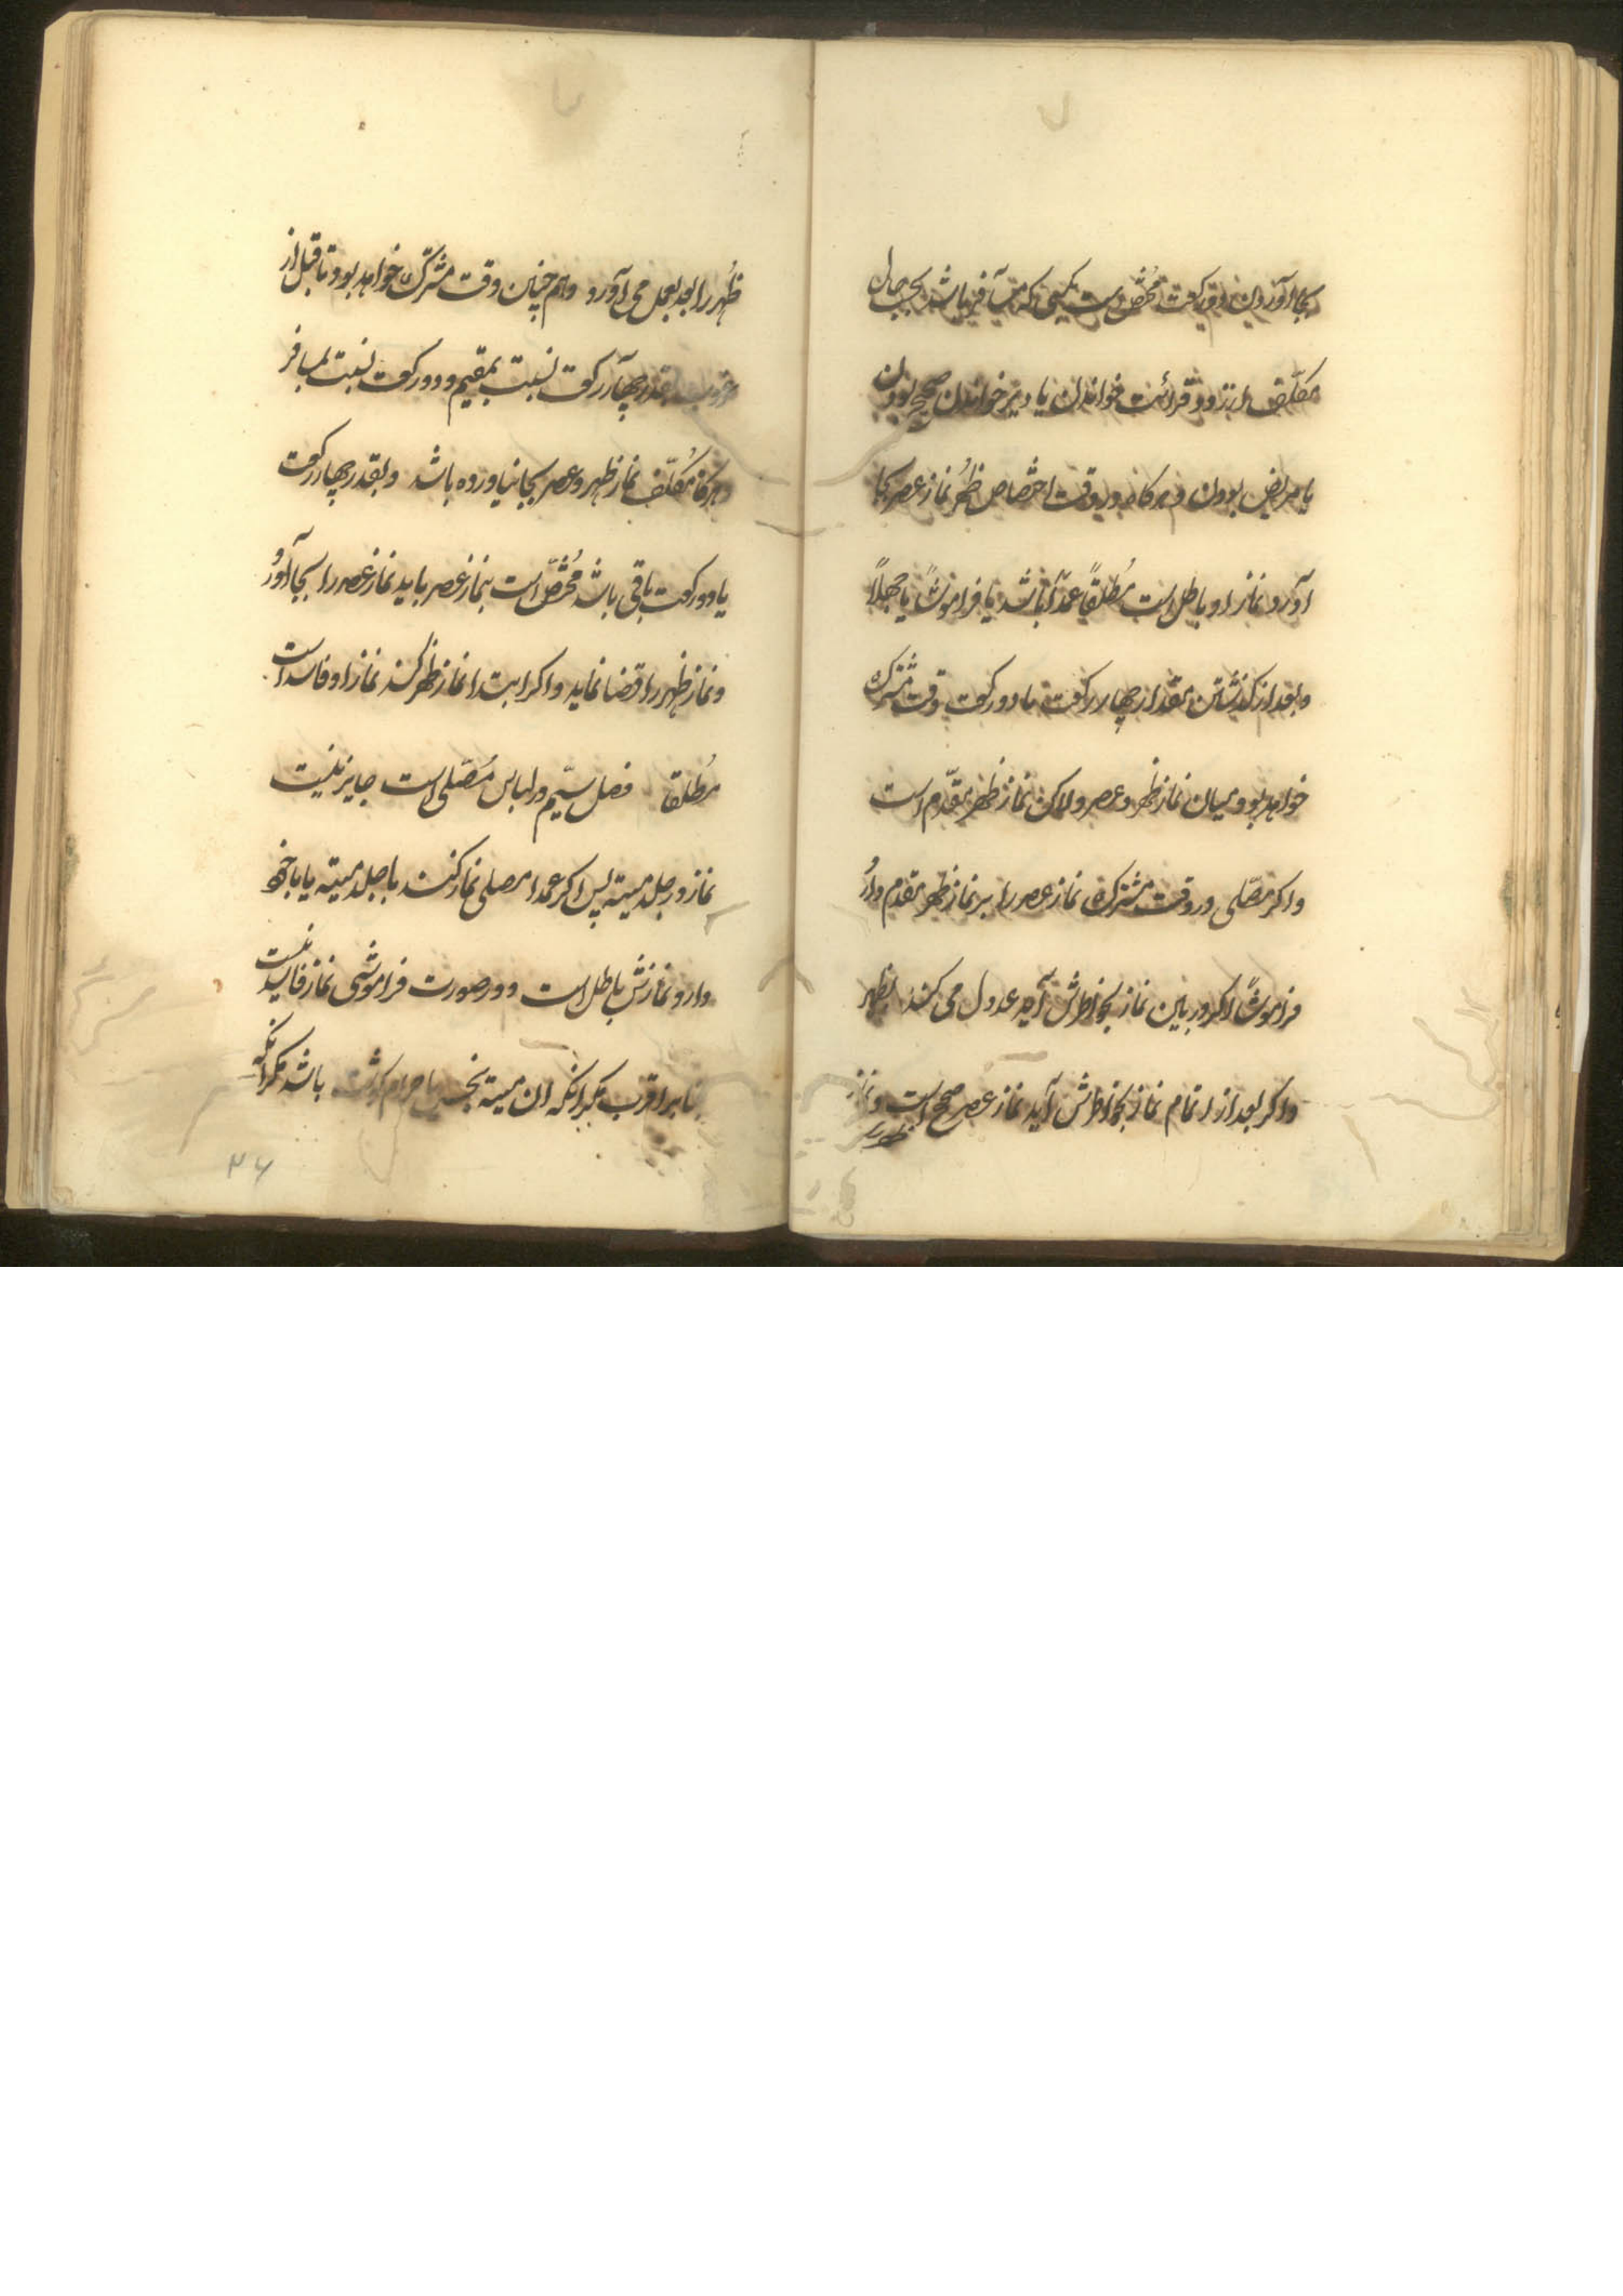 بجا آوردن دو رکعت مختص است بکسی که مسافر باشد بحسب حال
مکلف از زود قرائت خواندن یا دیر خواندن صحیح بودن
یا مریض بودن و هرکاه در وقت اختصاص ظُهر نماز عصر بجا
آورد نماز او باطل است مُطلقاً عمداً باشد یا فراموشاً یا جهلاً
و بعد از کذشتن مقدار چهار رکعت یا دو رکعت وقت مشترک
خواهد بود میان نماز ظهر و عصر ولاکن نماز ظهر مقدّم است
و اکر مصّلی در وقت مشترک نماز عصر را بر نماز ظهر مقدم دارد
فراموشاً اکر در بین نماز بخواطرش آید عدول می کند بظهر
و اکر بعد از اتمام نماز بخواطرش آید نماز عصر صحیح است و نماز
ظهر را
ظُهر را بعد بعمل می آورد و هم چنین وقت مشترک خواهد بود تا قبل از
غروب بقدر چهار رکعت نسبت بمقیم و دو رکعت نسبت بمسافر
و هرکاه مُکلّف نماز ظهر و عصر بجا نیاورده باشد و بقدر چهار رکعت
یا دو رکعت باقی باشد مُختصّ است بنماز عصر باید نماز عصر را بجا آورد
و نماز ظهر را قضا نماید و اکر ابتدا نماز ظهر کند نماز او فاسد است
مُطلقا فصل سیّم در لباس مُصّلی است جایز نیست
نماز در جلد میته پس اکر عمدا مصلی نماز کند با جلد میته یا با خود
دارد نمازش باطل است و در صورت فراموشی نماز فاسد نیست
بنابر اقرب مکر انکه ان میته نجس یا حرام کوشت باشد مکر انکه
۲۶